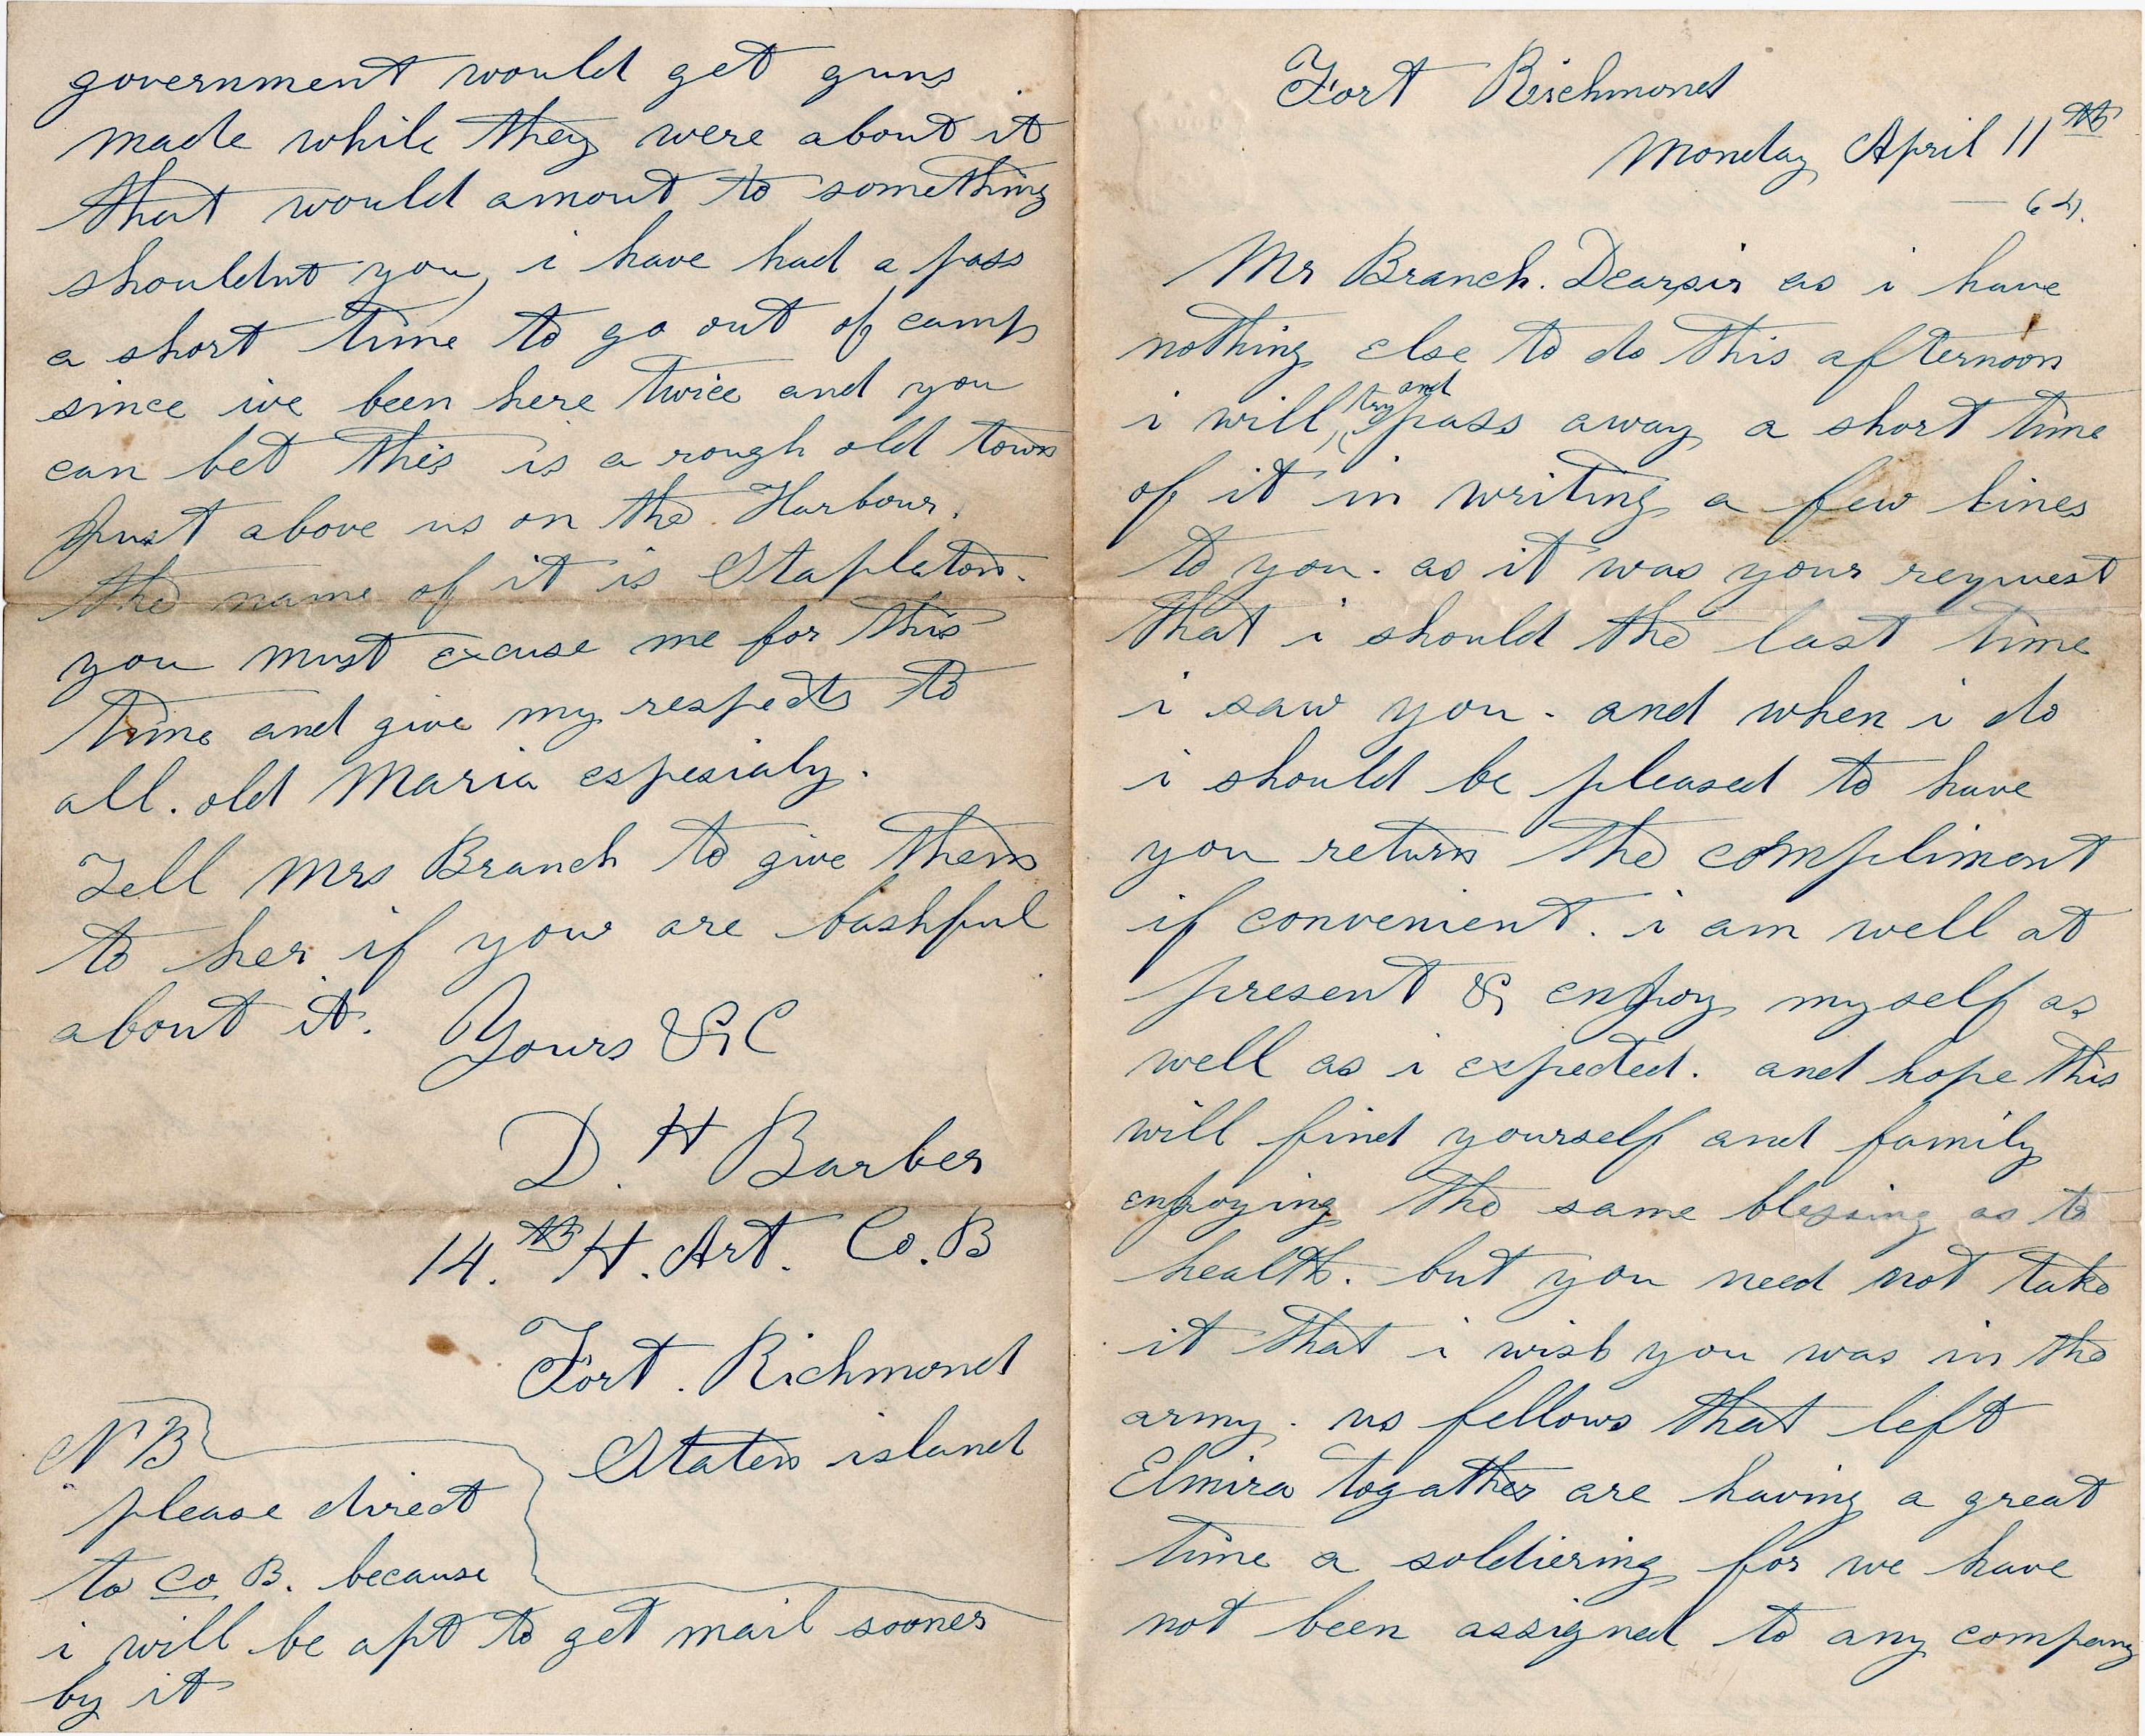 Fort Richmond
Monday April 11th
— 64.
Mr Branch. Dearsir as i have
nothing else to do this afternoon
i will try and pass away a short time
of it in writing a few lines
to you. as it was your reqwest
that i should the last time
i saw you. and when i do
i should be pleased to have
you return the compliment
if convenient. i am well at
present & enjoy myself as
well as i expected. and hope this
will find yourself and family
enjoying the same blessing as to
health. but you need not take
it that i wish you was in the
army. us fellows that left
Elmira togather are having a great
time a soldiering for we have
not been assigned to any company
government would get guns
made while they were about it
that would amout to something
shouldnt you, i have had a pass
a short time to go out of camp
since ive been here twice and you
can bet this is a rough old town
just above us on the Harbour.
the name of it is Stapleton.
you must excuse me for this
time and give my respects to
all. old Maria espesialy.
Tell Mrs Branch to give them
to her if your are bashful
about it. Yours &C
D. H Barber
14.th H. Art. Co. B
Fort. Richmond
Staten island
NB
please direct
to Co B. because
i will be apt to get mail sooner
by it